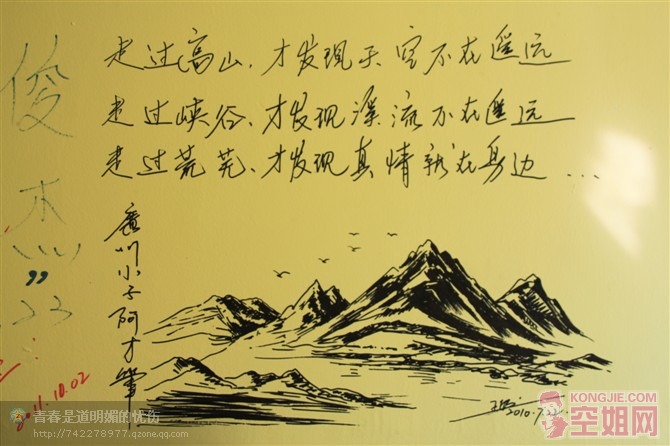 走过高山、才发现天空不在遥远
走过峡谷、才发现溪流不在遥远
走过荒芜、才发现真情就在身边...
廣州小子阿才筆
俊杰
2011.10.02
青春是道明媚的忧伤
http://742278977.qzone.qq.com
KONGJIE.COM
空姐网